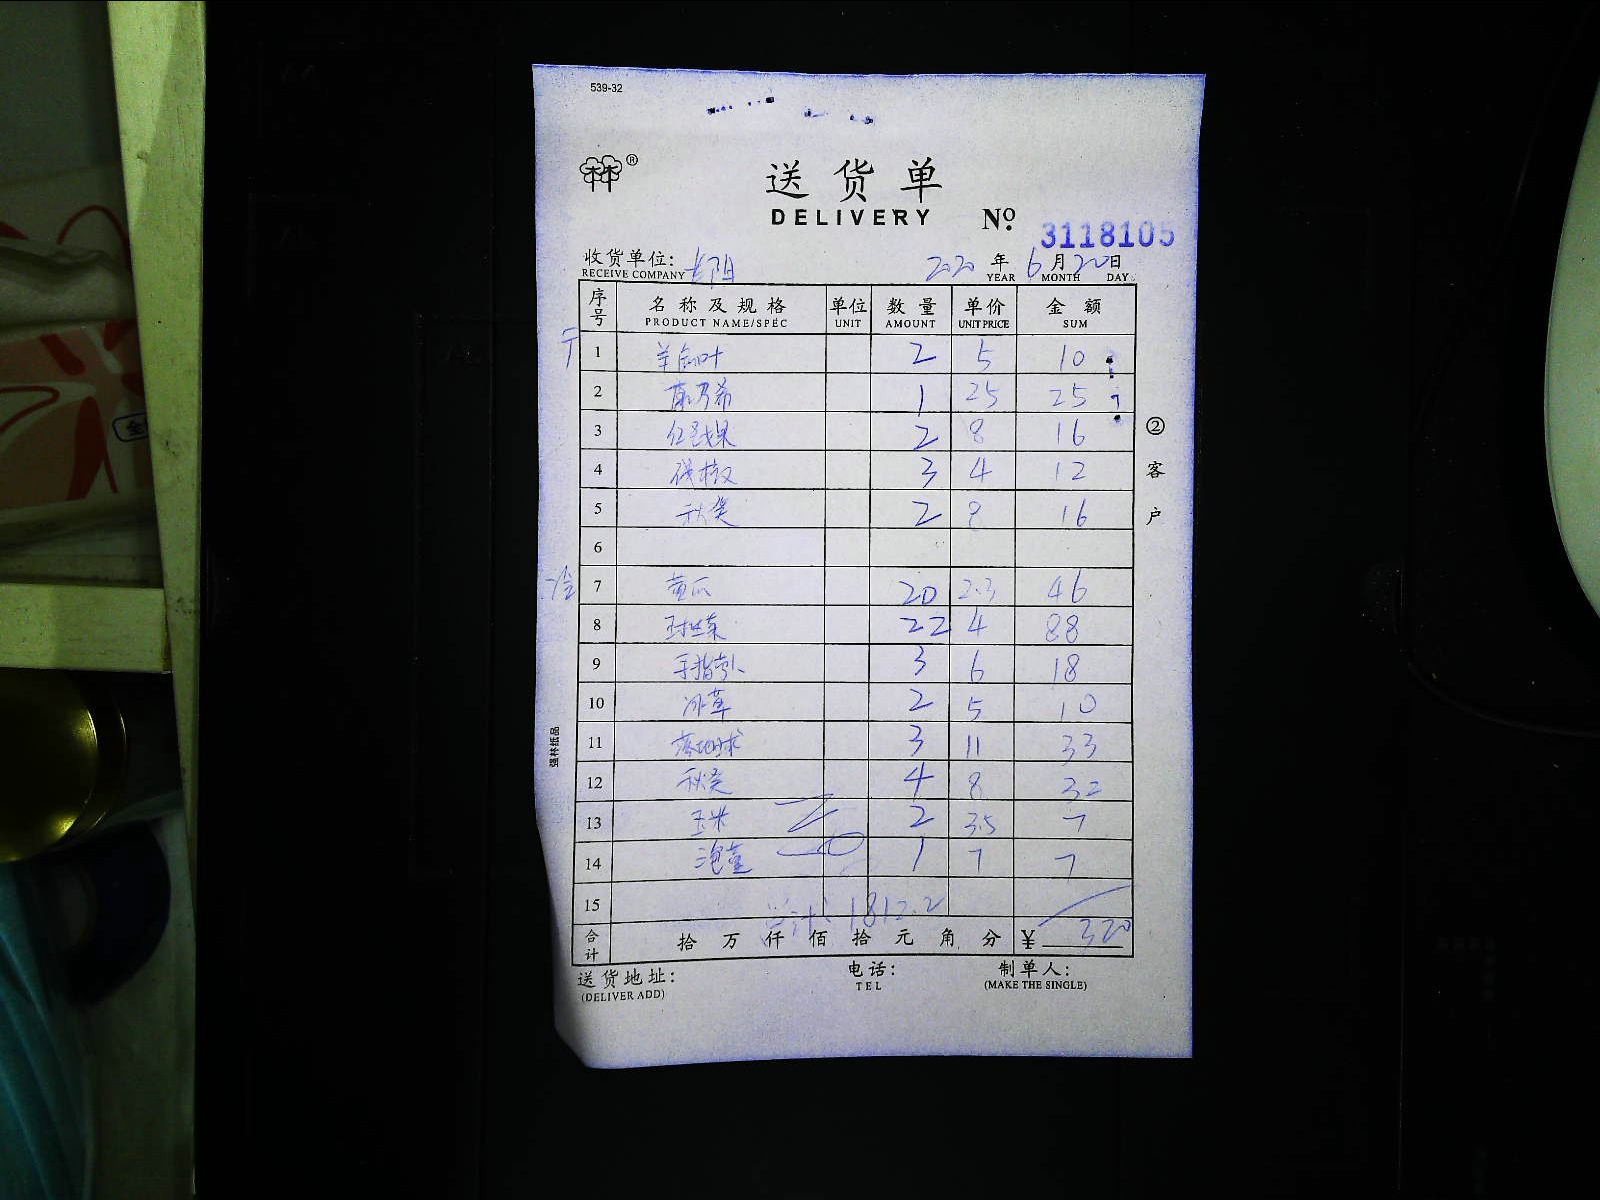 539-32
林®
送货单
DELIVERY № 3118105
收货单位: 长阳 2020 年 6 月 20 日
RECEIVE COMPANY YEAR MONTH DAY
序号 名称及规格 单位 数量 单价 金额
PRODUCT NAME/SPEC UNIT AMOUNT UNIT PRICE SUM
1 2 5 10
2 康乃希 1 25 25
3 2 8 16
4 线椒 3 4 12
5 秋葵 2 8 16
6
7 黄瓜 20 2.3 46
8 22 4 88
9 手指萝卜 3 6 18
10 冰草 2 5 10
11 3 11 33
12 秋葵 4 8 32
13 玉米 2 3.5 7
14 1 7 7
15 总计: 1812.2
合计 拾 万 仟 佰 拾 元 角 分 ¥ 320
送货地址: 电话: 制单人:
(DELIVER ADD) TEL (MAKE THE SINGLE)
②客户
强林纸品